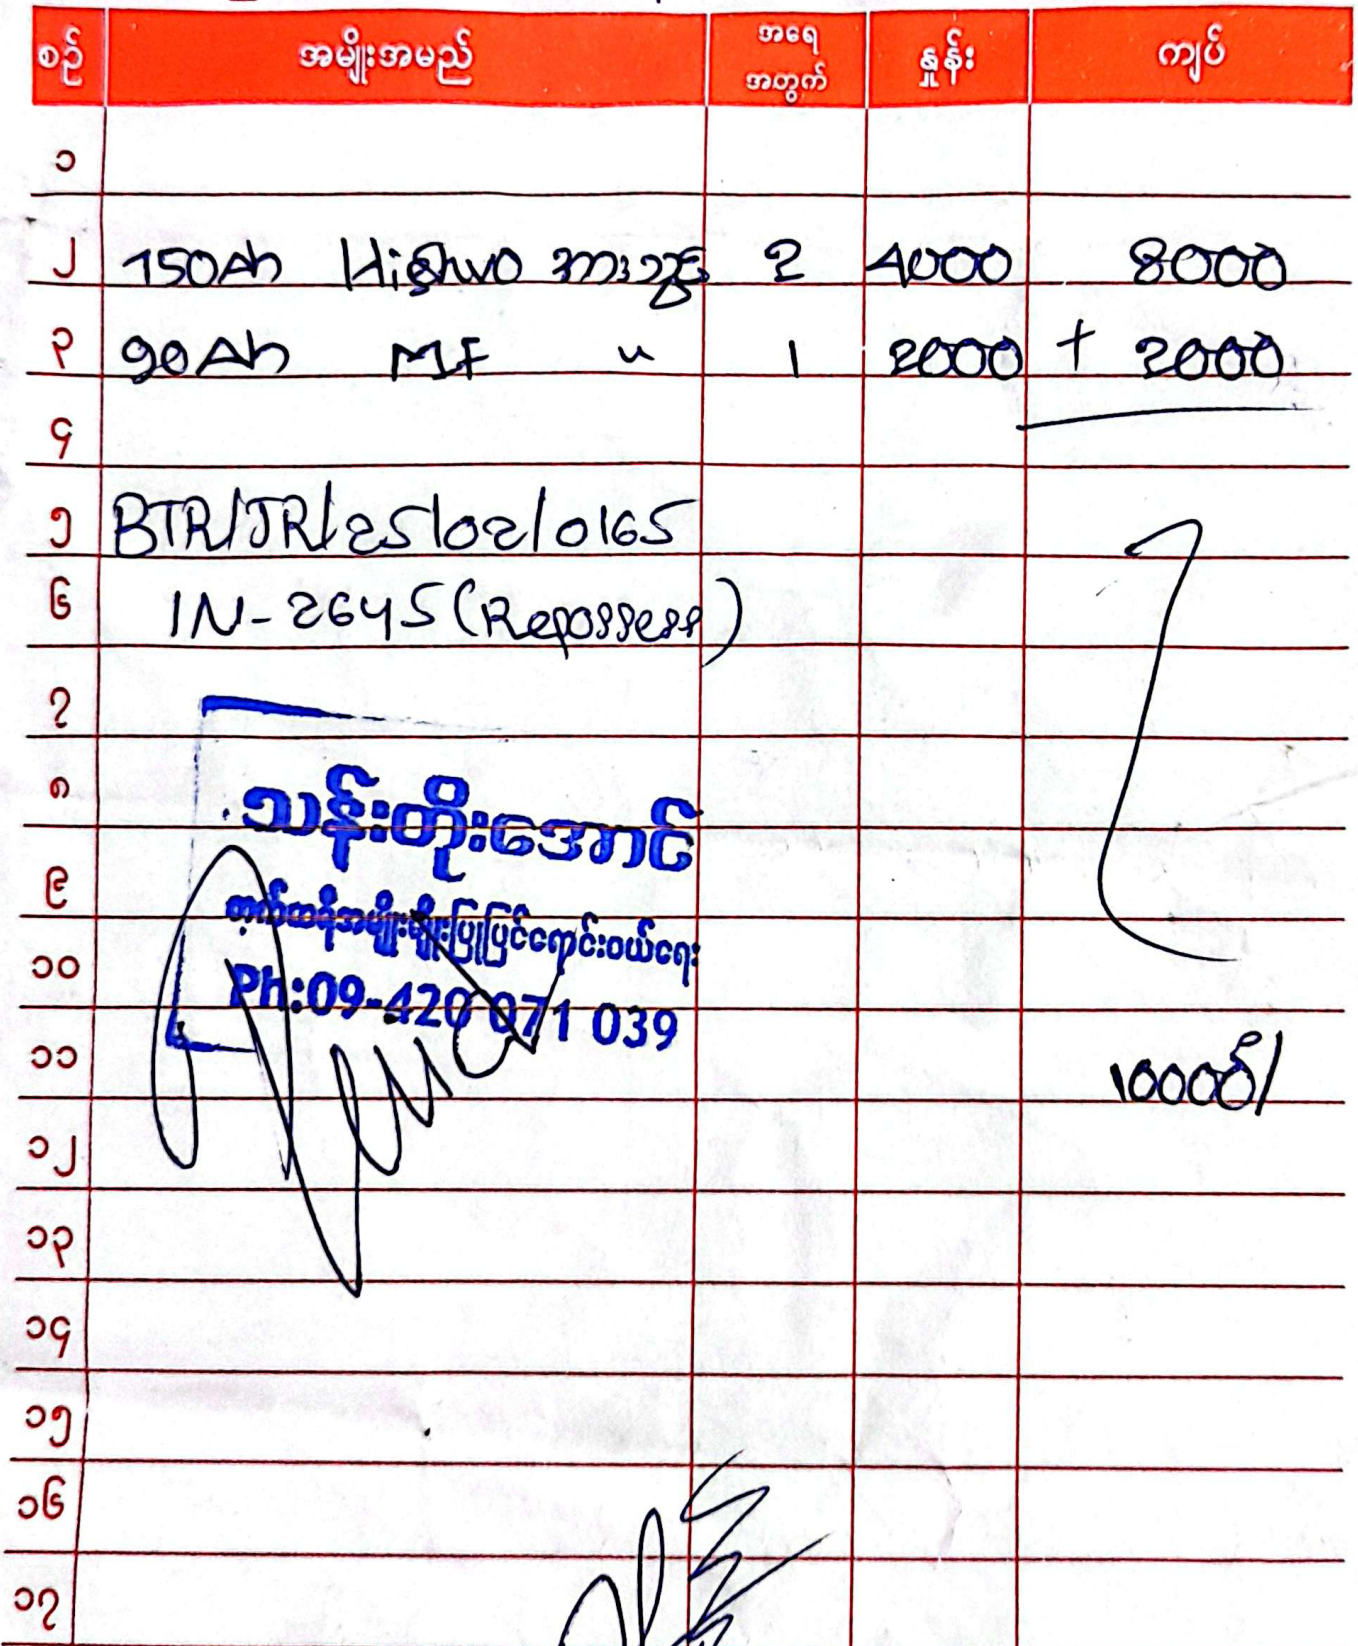 စဉ် အမျိုးအမည် အရေအတွက် နှုန်း ကျပ်
၁
၂ 150Ah အားသွင်း 2 4000 8000
၃ 90Ah MF " 1 2000 + 2000
၄
၅ BTR/JR/25/02/0165
၆ 1N-2645 (Repossess)
၇
၈ သန်းတိုးအောင်
၉ ဘက်ထရီအမျိုးမျိုးပြုပြင်ရောင်းဝယ်ရေး
၁၀ Ph:09-420 071 039
၁၁ 10000/
၁၂
၁၃
၁၄
၁၅
၁၆
၁၇